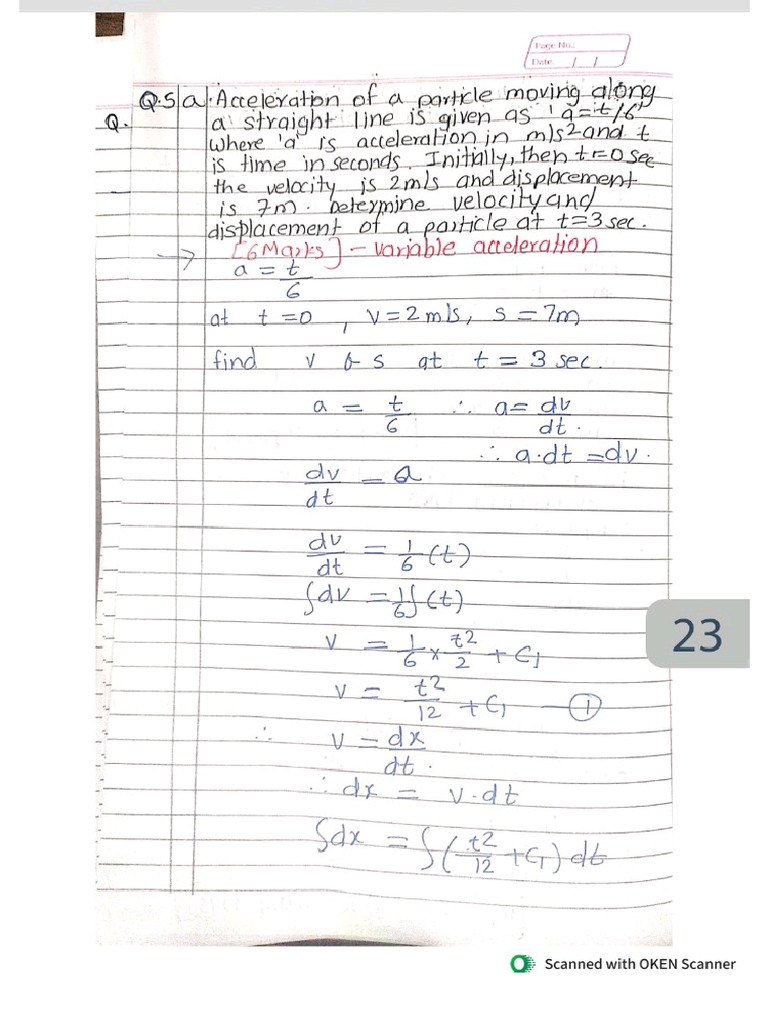 Page No.:
Date / /
Q.5 a. Acceleration of a particle moving along
Q. a straight line is given as 'a=t/6'
where 'a' is acceleration in m/s2 and t
is time in seconds. Initially, then t=0 sec
the velocity is 2m/s and displacement
is 7m. Determine velocity and
displacement of a particle at t=3 sec.
→ [6 Marks] - variable acceleration
a = t/6
at t=0 , v=2m/s, s=7m
find v & s at t = 3 sec.
a = t/6 ∴ a= dv/dt.
∴ a.dt = dv.
dv/dt = a
dv/dt = 1/6 (t)
∫dv = 1/6 ∫(t)
v = 1/6 × t2/2 + C1
v = t2/12 + C1 — ①
∴ v = dx/dt.
∴ dx = v.dt
∫dx = ∫(t2/12 + C1) dt
23
Scanned with OKEN Scanner